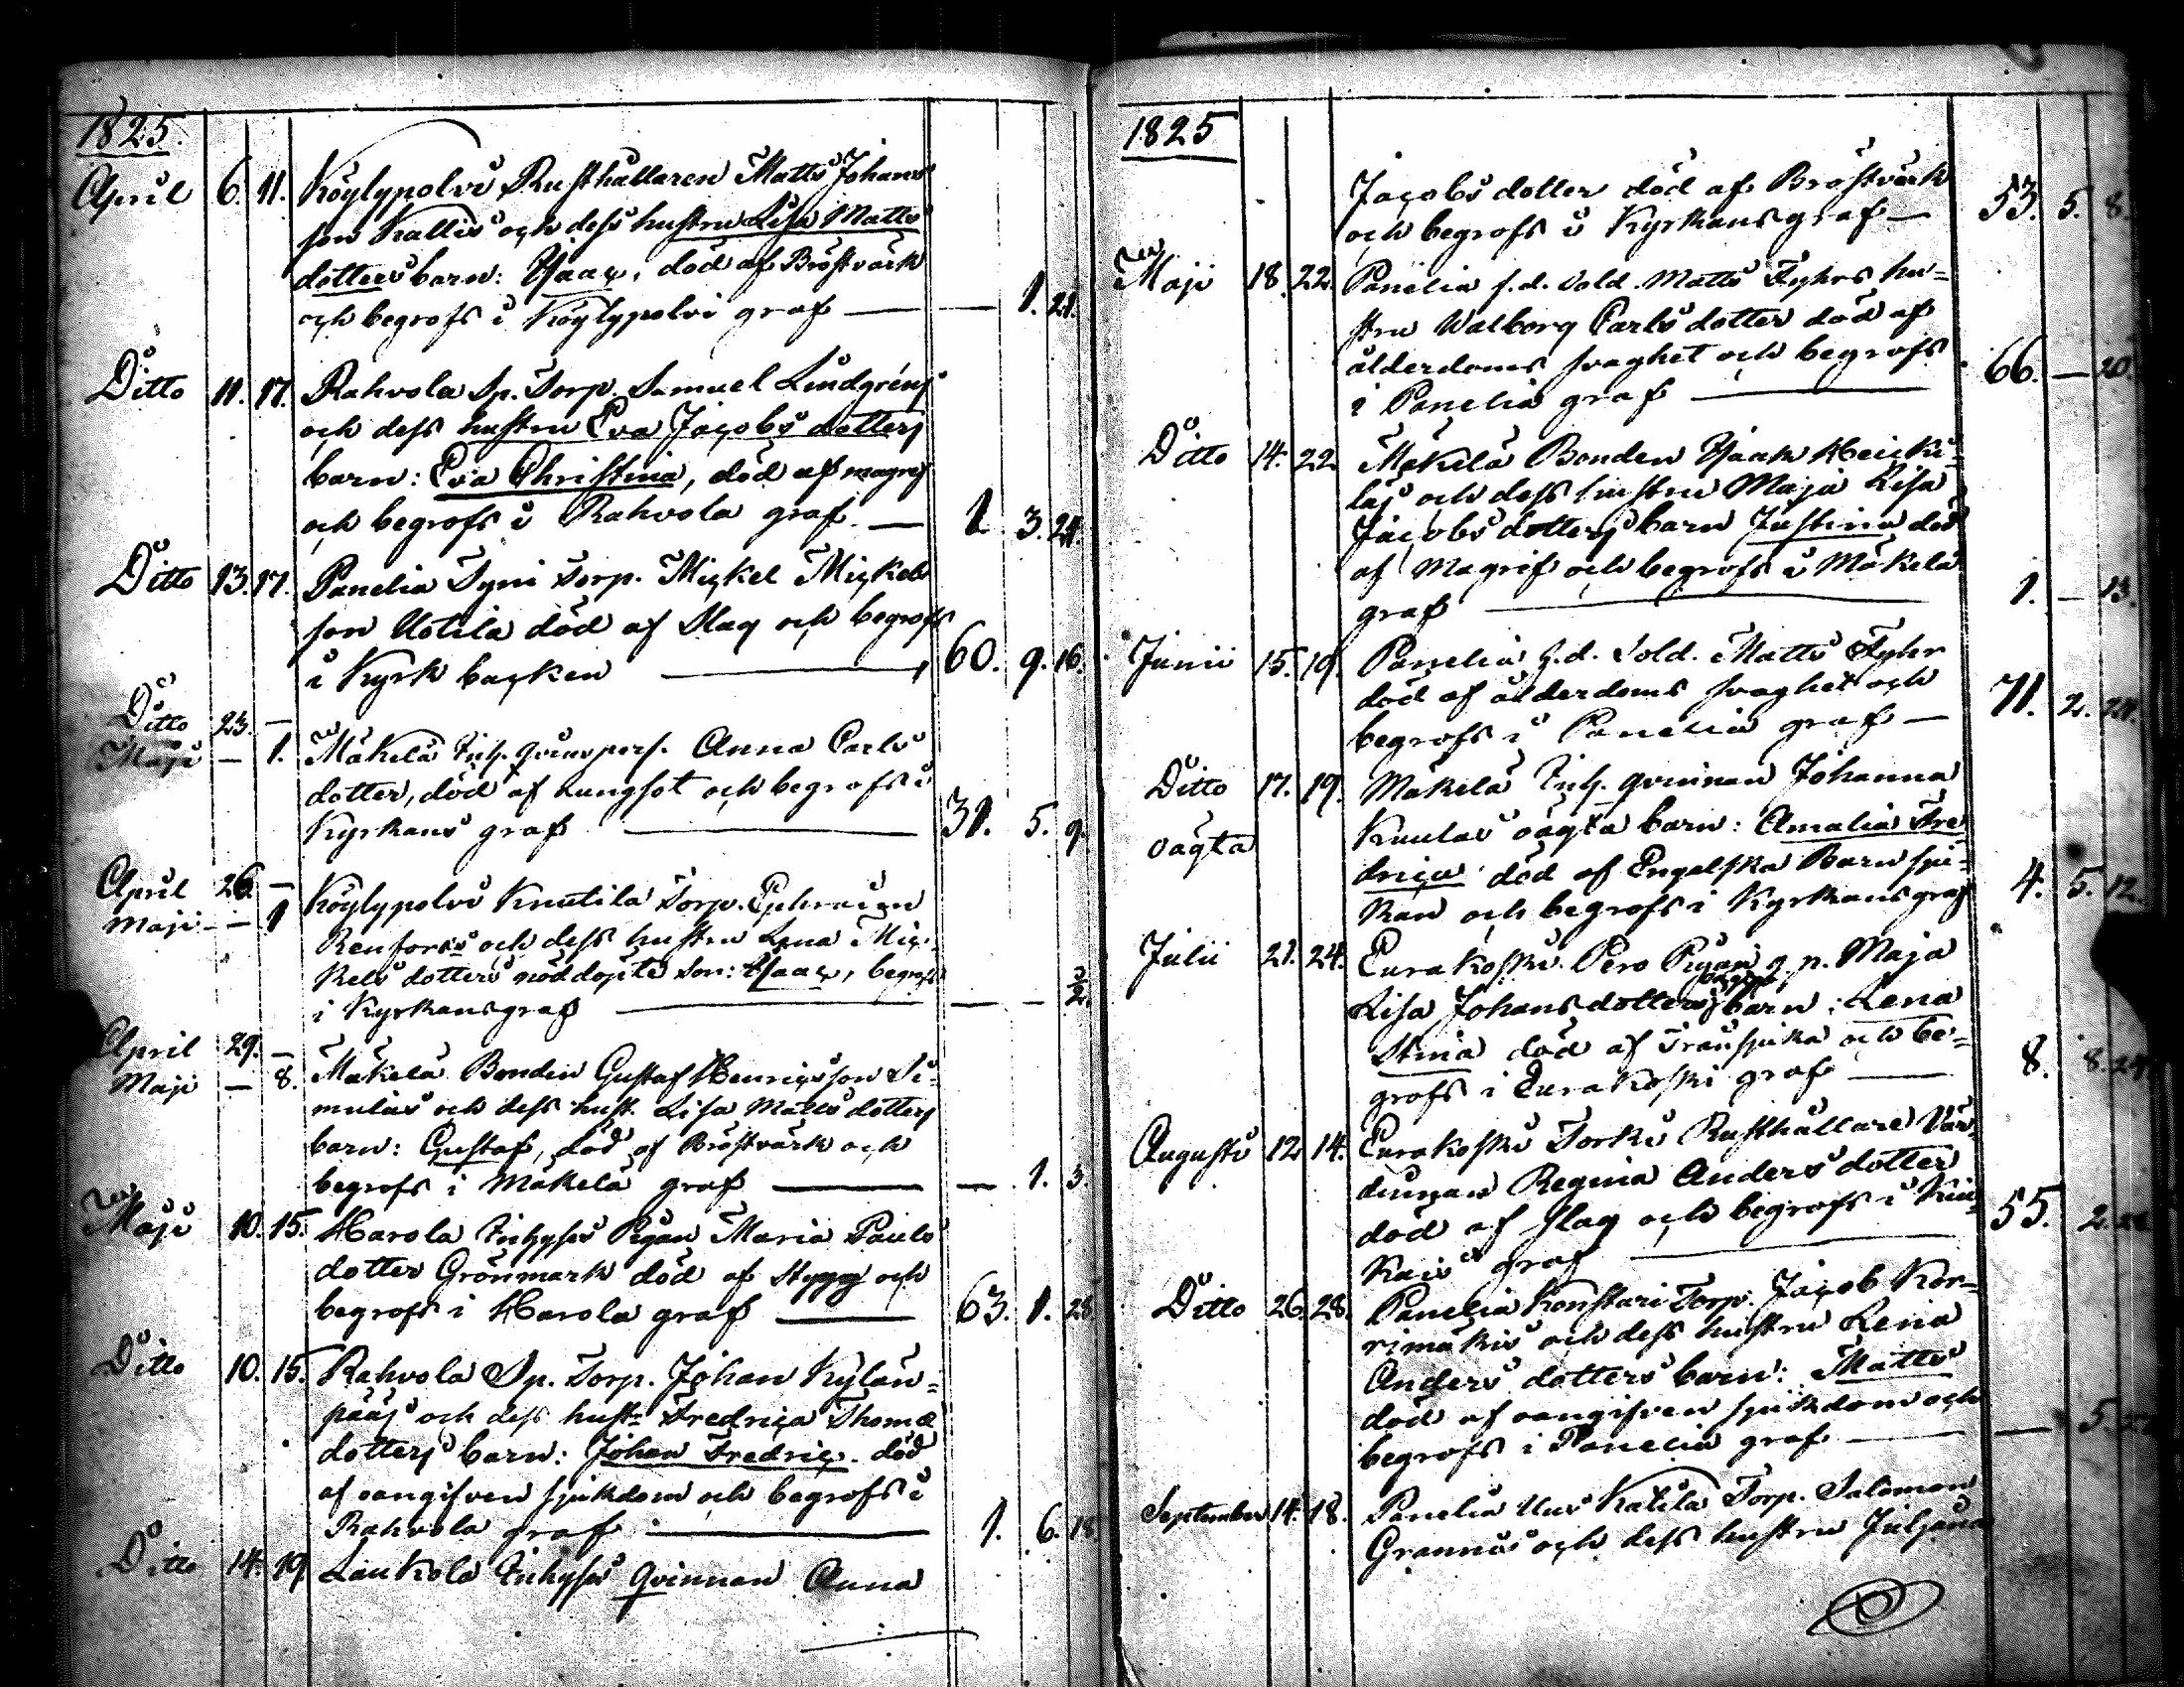 1825.
April 6. 11. Köylypolvi Rusthållaren Matts Johans
son Kallis och dess hustru Lisa Matts
dotters barn: Isaac, död af Bröstvärk
och begrofs i Köylypolvi graf — — 1. 21.
Ditto 11. 17. Rahvola Sp. Torp. Samuel Lindgréns
och dess hustru Eva Jacobs dotters
barn: Eva Christina, död af magref
och begrofs i Rahvola graf — 1 3. 24.
Ditto 13. 17. Panelia Torp. Mickel Mickels
son Uotila död af Slag och begrofs
i Kyrk backen — 60. 9. 16.
Ditto 23. —
Maji — 1. Mäkelä Inh. qvinspers. Anna Carls
dotter, död af Lungsot och begrofs i
Kyrkans graf — 31. 5. 9.
April 26. —
Maji — 1 Köylypolvi Knutila Torp. Ephraim
Renfors och dess hustru Lena Mic-
kels dotters nöddöpte son: Isaac, begrofs
i Kyrkans graf — — — ½
April 29. —
Maji — 8. Mäkelä Bonden Gustaf Henricsson Si-
mulas och dess hust. Lisa Matts dotters
barn: Gustaf, död af Bröstvärk och
begrofs i Mäkelä graf — — 1. 3.
Maji 10. 15. Harola Inhyses Pigan Maria Pauls
dotter Grönmark död af Stygg och
begrofs i Harola graf — 63. 1. 28.
Ditto 10. 15. Rahvola Sp. Torp. Johan Kylän-
pääs och dess hust. Fredrica Thomæ
dotters barn: Johan Fredric. död
af oangifven sjukdom och begrofs i
Rahvola graf — 1. 6. 18.
Ditto 14. 19 Laukola Inhyses Qvinnan Anna
1825
Jacobs dotter död af Bröstvärk
och begrofs i Kyrkans graf — 53. 5. 8.
Maji 18. 22. Panelia f. d. Sold. Matts Fyhrs hu-
stru Walborg Carls dotter död af
ålderdoms svaghet och begrofs
i Panelia graf — 66. — 20.
Ditto 14. 22 Mäkelä Bonden Isaak Heicki-
läs och dess hustru Maja Lisa
Jacobs dotters barn Justina död
af Magref och begrofs i Mäkelä
graf — 1. — 13.
Junii 15. 19. Panelia f. d. Sold. Matts Fyhr
död af ålderdoms svaghet och
begrofs i Panelia graf — 71. 2. 21.
Ditto 17. 19. Mäkelä Inh. qvinnan Johanna
oägta Knulas oägta barn: Amalia Fre
drica död af Engelska Barn sju-
kan och begrofs i Kyrkans graf 4. 5. 12.
Julii 21. 24. Eurakoski Pero Pigan q. p. Maja
Lisa Johansdotters barn: Lena
Stina död af Transjuka och be-
grofs i Eurakoski graf — 8. 8. 24
Augusti 12 14. Eurakoski Torki Rusthållare Vär-
dinnan Regina Anders dotter
död af slag och begrofs i Kiu-
kais graf — 55. 2.
Ditto 26. 28. Panelia Konstari Torp. Jacob Kor-
rimäkis och dess hustru Lena
Anders dotters barn: Matts
död af oangifven sjukdom och
begrofs i Panelia graf — — 5.
September 14. 18. Panelia Uus Katila Torp. Salomon
Grannas och dess hustru Juljana